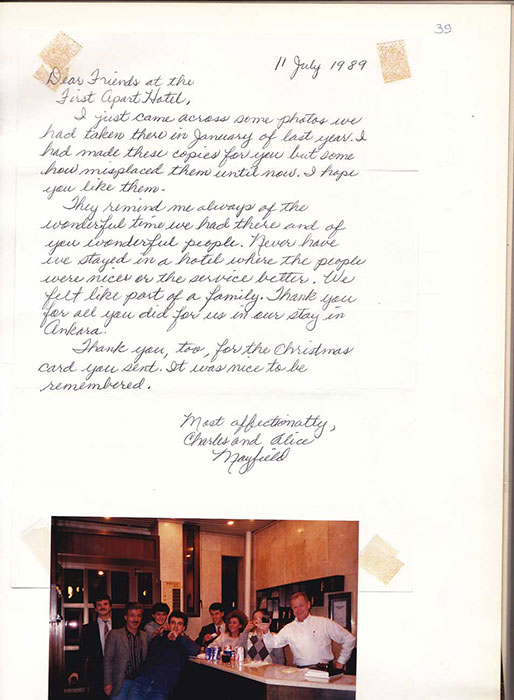 39
11 July 1989
Dear Friends at the
First Apart Hotel,
I just came across some photos we
had taken there in January of last year. I
had made these copies for you but some
how misplaced them until now. I hope
you like them.
They remind me always of the
wonderful time we had there and of
you wonderful people. Never have
we stayed in a hotel where the people
were nicer or the service better. We
felt like part of a family. Thank you
for all you did for us in our stay in
Ankara.
Thank you, too, for the Christmas
card you sent. It was nice to be
remembered.
Most affectionatly,
Charles and Alice
Mayfield